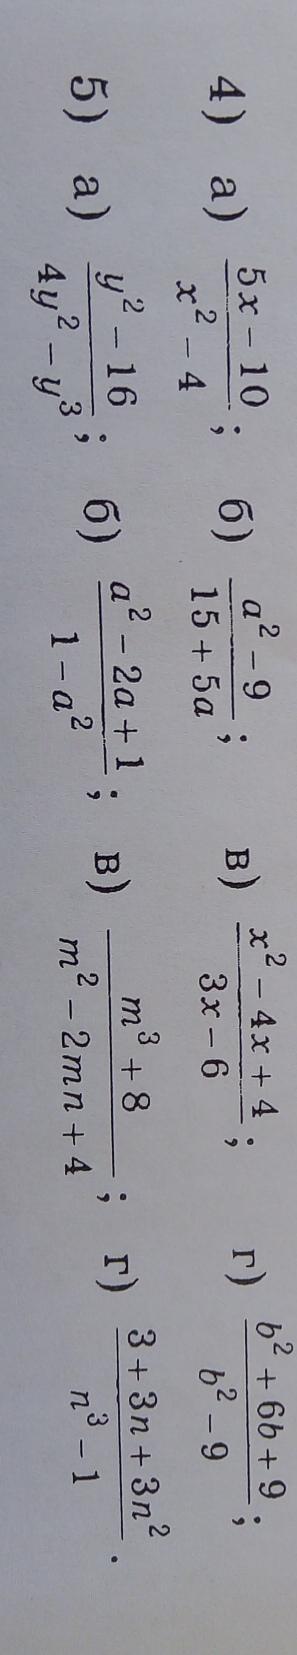 4) а) (5x − 10)/(x² − 4); б) (a² − 9)/(15 + 5a); в) (x² − 4x + 4)/(3x − 6); г) (b² + 6b + 9)/(b² − 9);
5) а) (y² − 16)/(4y² − y³); б) (a² − 2a + 1)/(1 − a²); в) (m³ + 8)/(m² − 2mn + 4); г) (3 + 3n + 3n²)/(n³ − 1).